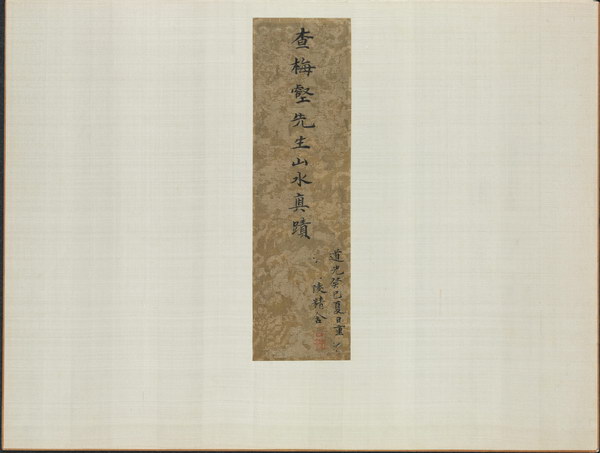 查梅壑先生山水真蹟
道光癸巳夏日重
陵